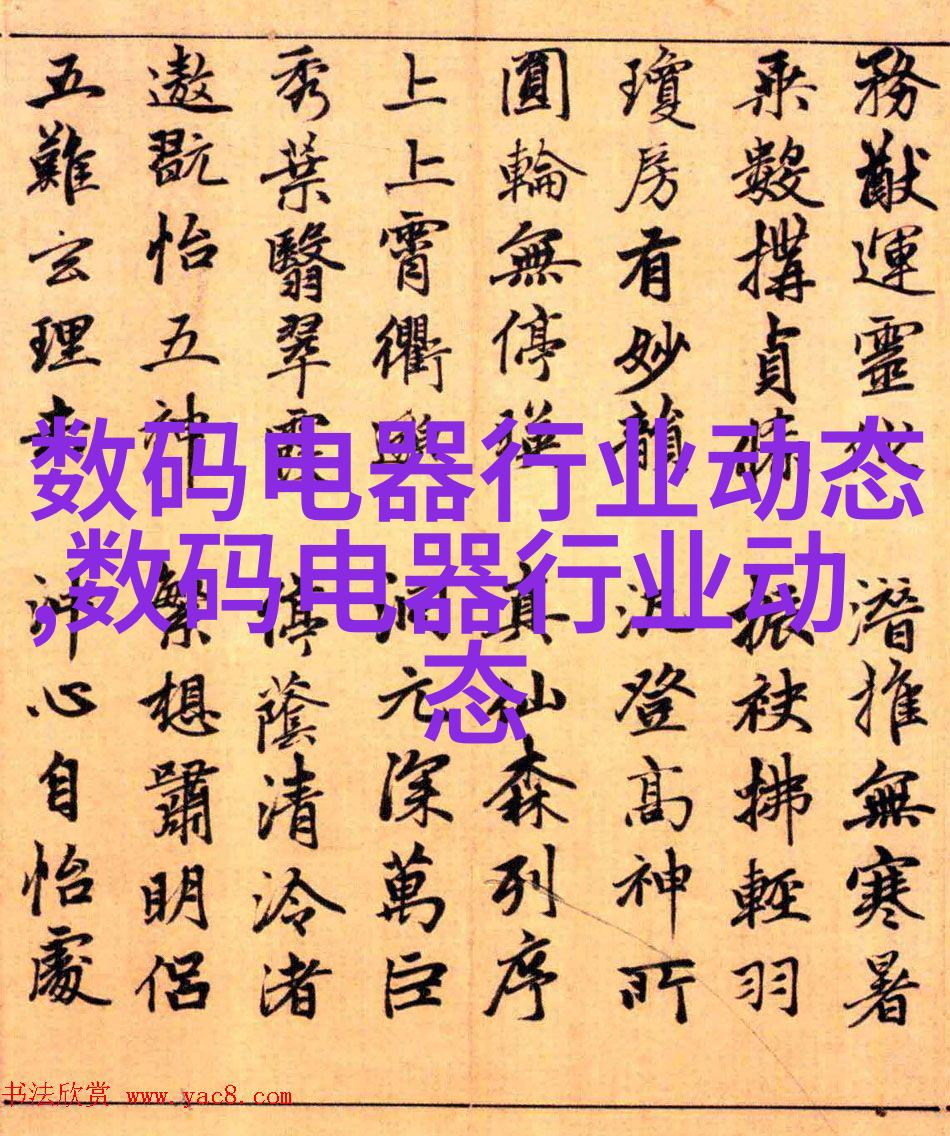 務猷運靈 潛推無寒暑
乘數搆貞條 振袂拂輕羽
瓊房有妙韻 泛登高神所
圓輪無停暎 真仙森列序
上上霄衢邈 洞元深萬
秀葉翳翠霞 停蔭清泠渚
遨翫怡五神 繁想明侶
五難玄理 冲心自怡處
数码电器行业动态
,数码电器行业动
态
书法欣赏 www.yac8.com